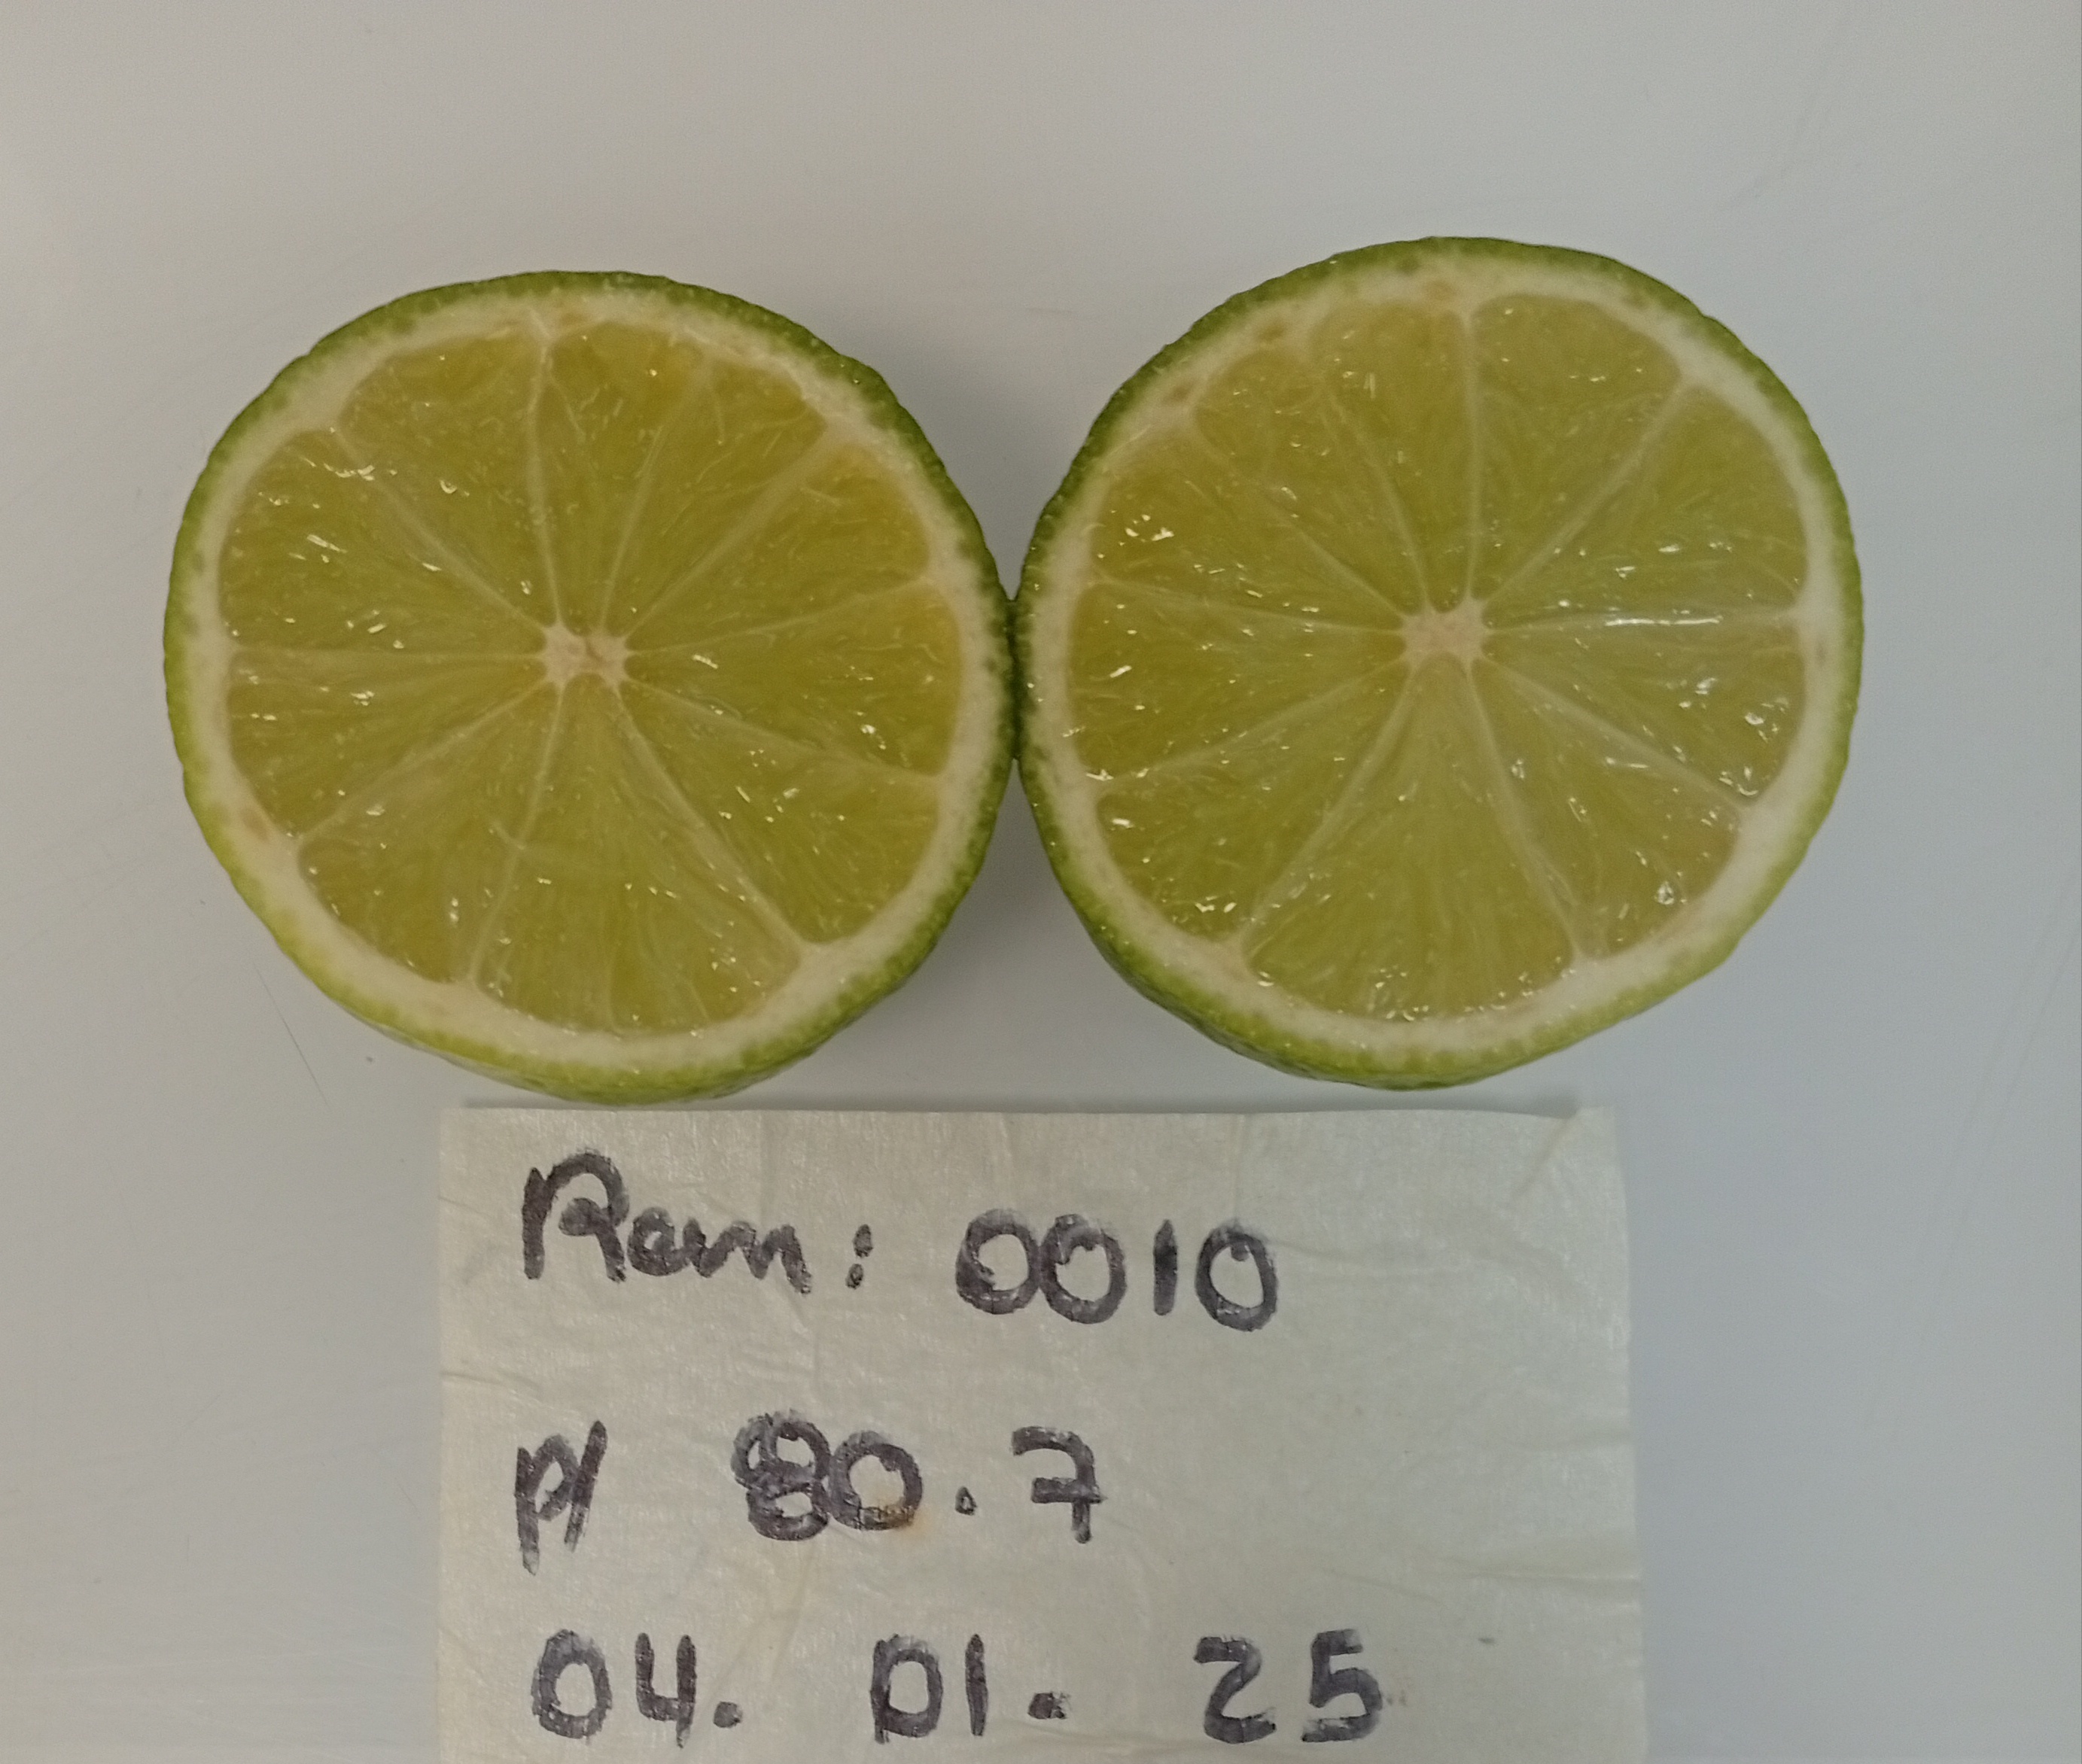 Rem: 0010
p/ 80.7
04. 01. 25